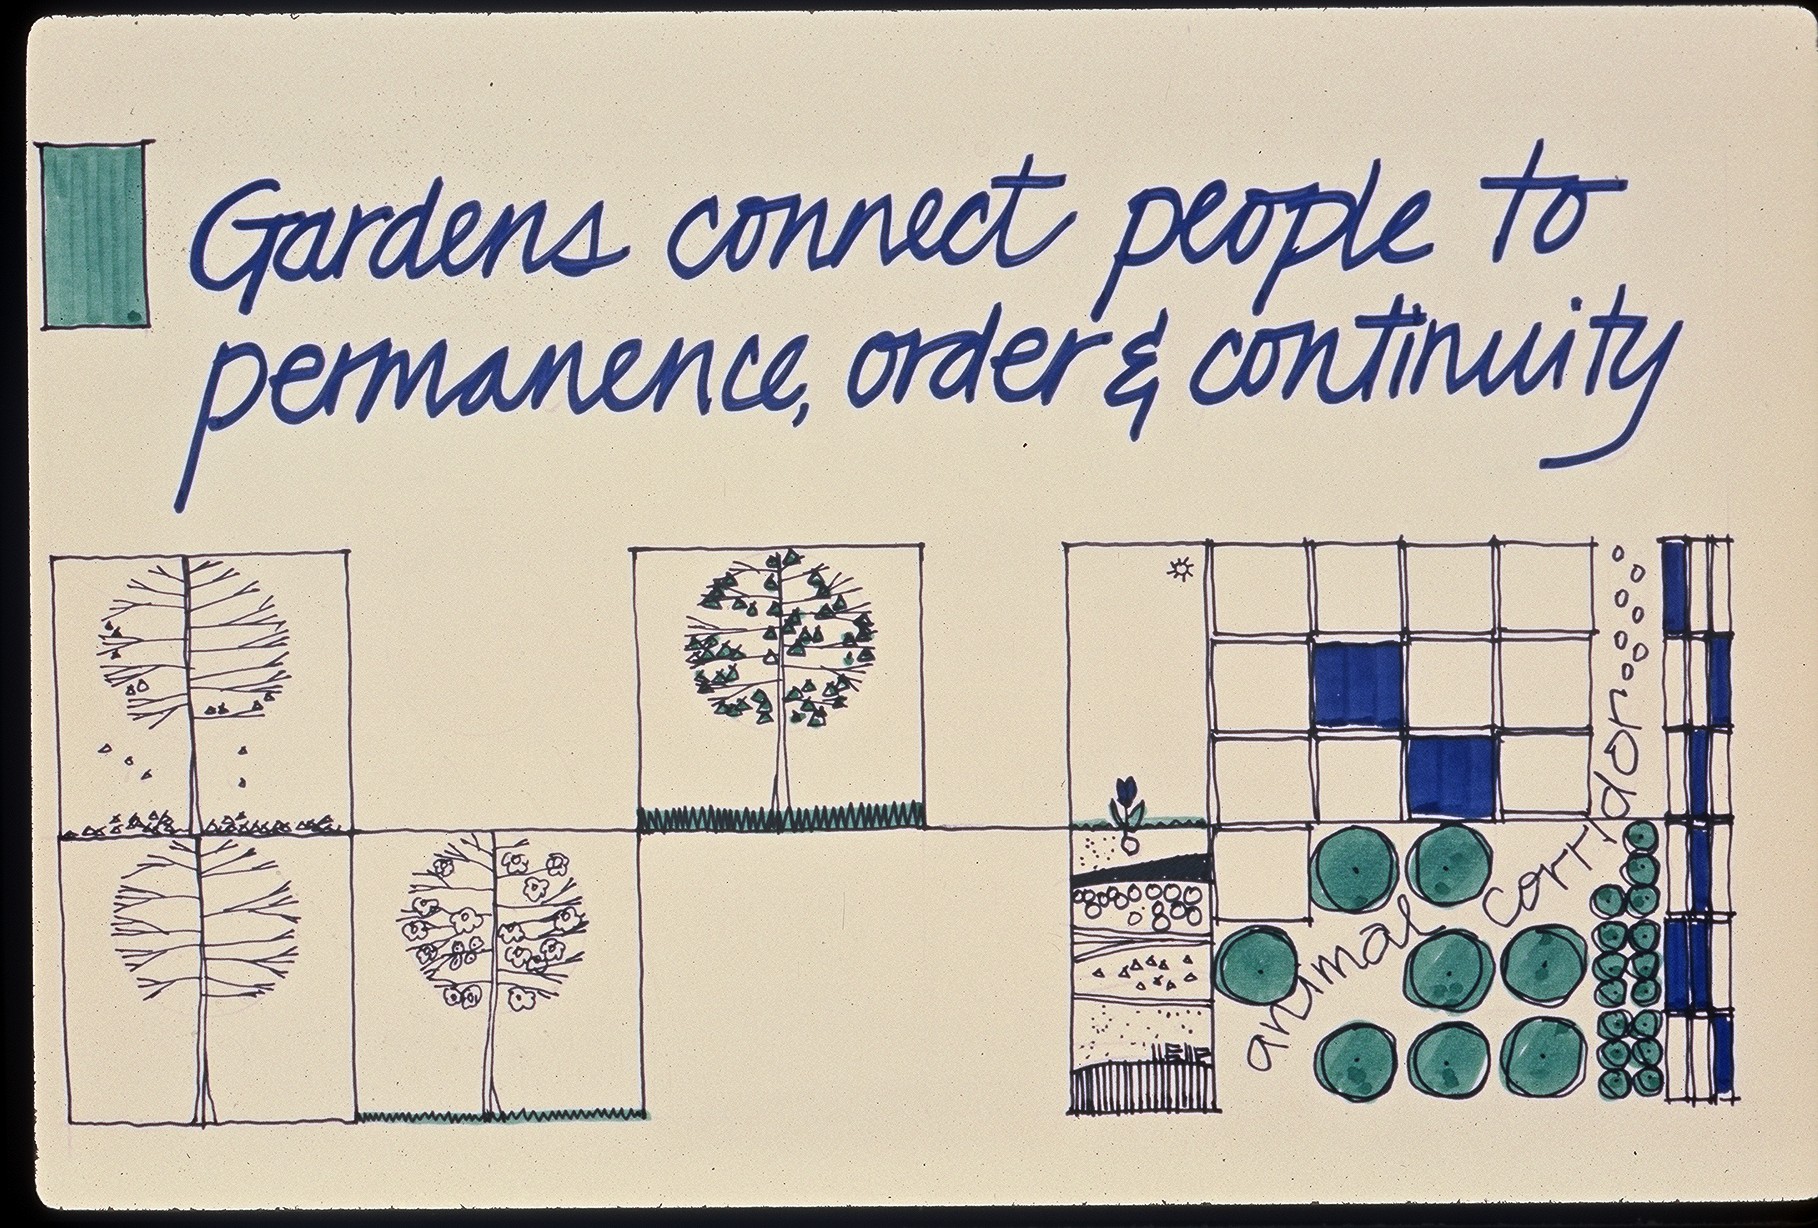 Gardens connect people to
permanence, order & continuity
animal corridor